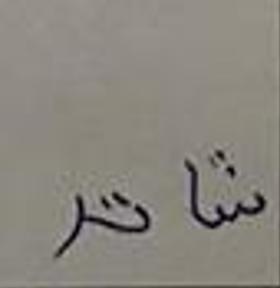 شا تر